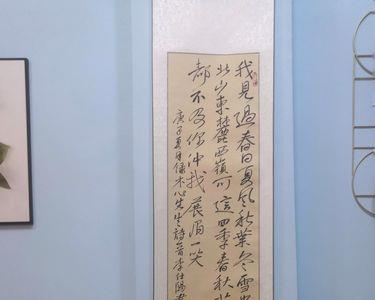 我見過春日夏風秋葉冬雪
北山東麓西嶺可這四季春秋
都不及你冲我展眉一笑
庚子夏月録木心先生詩